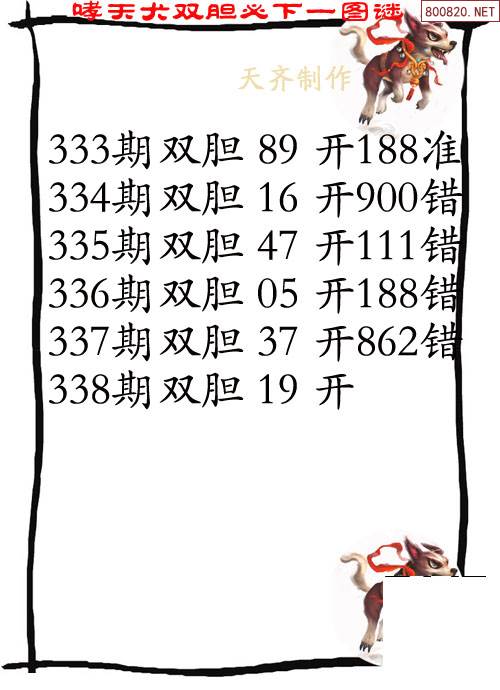 哮天犬双胆必下一图谜
800820.NET
天齐制作
333期双胆 89 开188准
334期双胆 16 开900错
335期双胆 47 开111错
336期双胆 05 开188错
337期双胆 37 开862错
338期双胆 19 开